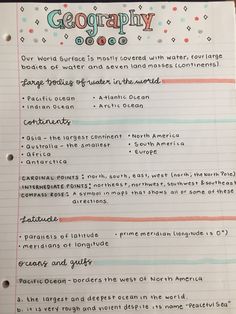 Geography
Our World Surface is mostly covered with water, four large
bodies of water and seven land masses (continents).
Large bodies of water in the world
• Pacific Ocean • Atlantic Ocean
• Indian Ocean • Arctic Ocean
Continents
• Asia - the largest continent • North America
• Australia - the smallest • South America
• Africa • Europe
• Antarctica
CARDINAL POINTS: north, south, east, west (north; the North Pole)
INTERMEDIATE POINTS: northeast, northwest, southwest & southeast
COMPASS ROSE: A symbol in maps that shows all or some of these
directions.
Latitude
• parallels of latitude • prime meridian (longitude is 0°)
• meridians of longitude
oceans and gulfs
Pacific Ocean - borders the west of North America
a. the largest and deepest ocean in the world.
b. it is very rough and violent despite its name "Peaceful Sea"